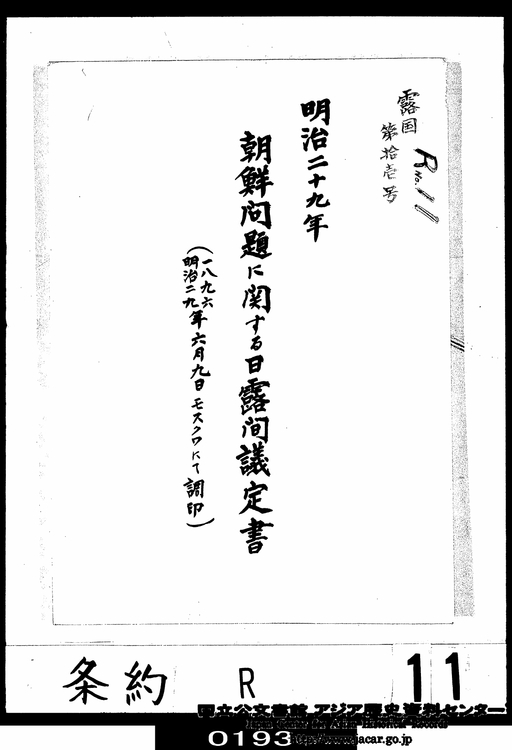 露国
第拾壱号
R No.11
明治二十九年
朝鮮問題に関する日露間議定書
(一八九六
明治二九年六月九日モスクワにて調印)
条約 R 11
国立公文書館 アジア歴史資料センター
Japan Center for Asian Historical Records
http://www.jacar.go.jp
0193